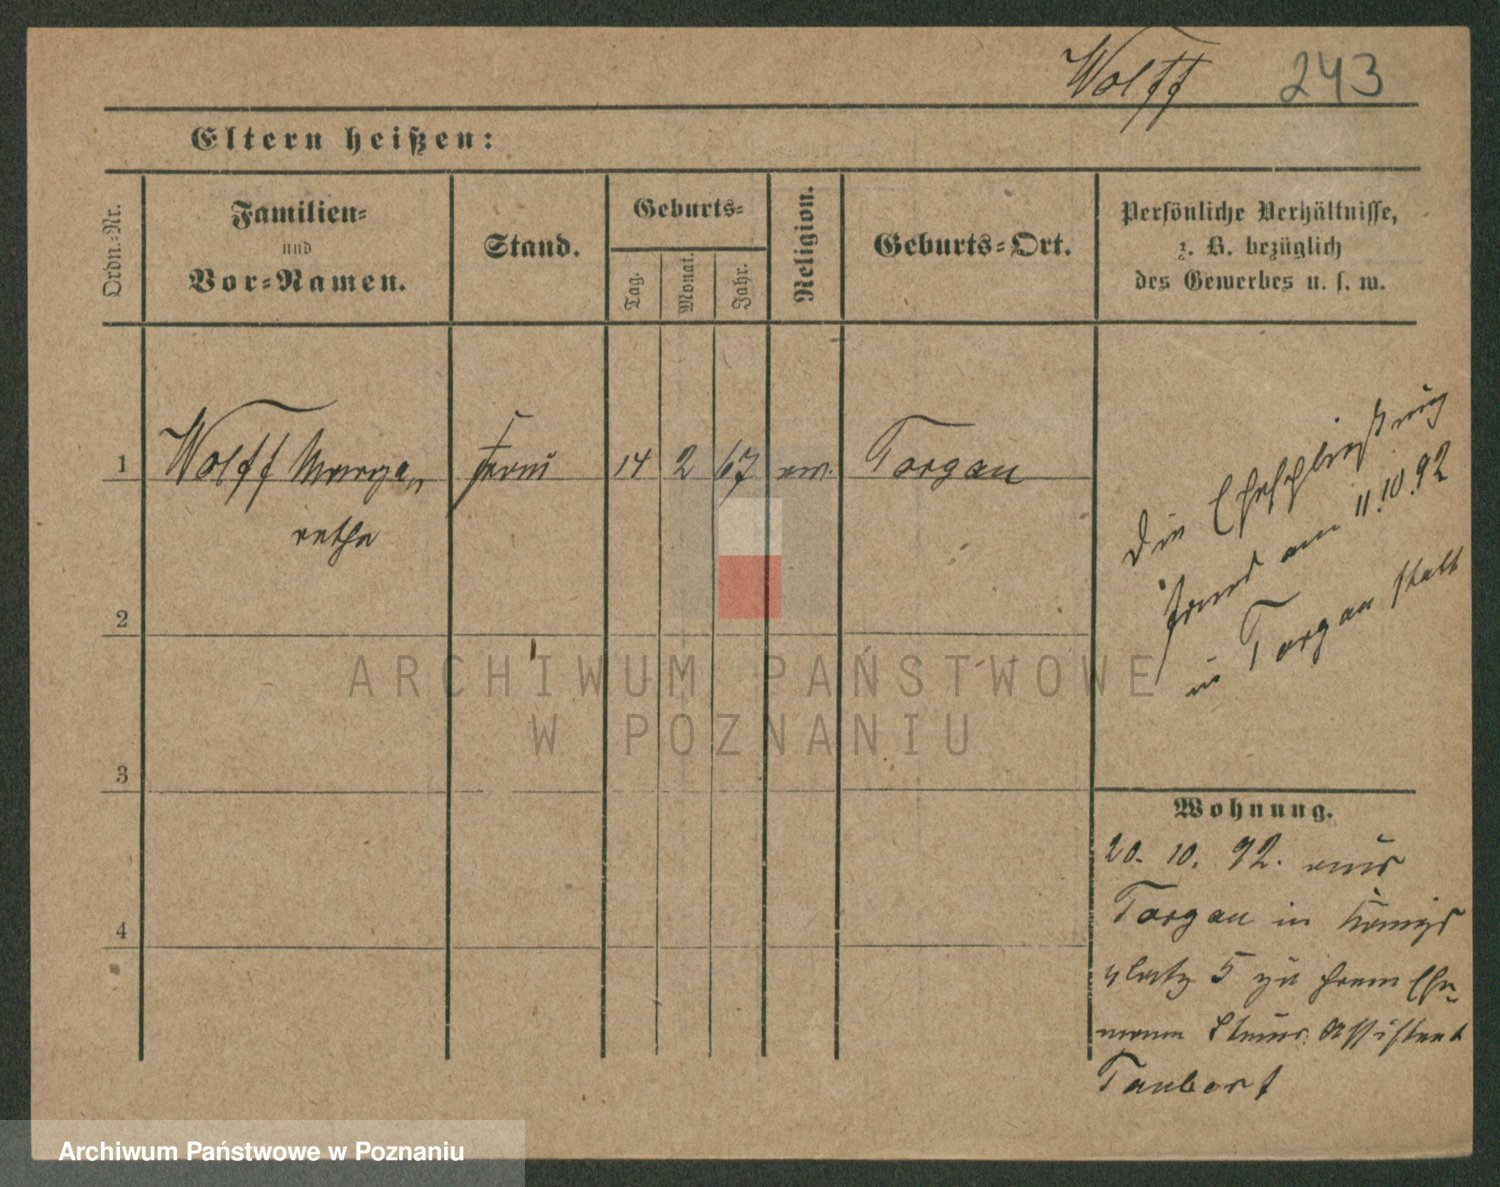 Wolff 243
Eltern heißen:
Ordn.-Nr.
Familien-
und
Vor-Namen.
Stand.
Geburts-
Tag.
Monat.
Jahr.
Religion.
Geburts-Ort.
Persönliche Verhältnisse,
z. B. bezüglich
des Gewerbes u. s. w.
1 Wolff Marga- 14 2 67 ev. Torgau
rethe
Die Eheschließung
fand am 11.10.92
in Torgau statt
2
3
4
Wohnung.
20. 10. 92. aus
Torgau in Königs
platz 5 zu ihrem Ehe-
mann Steuer Assistent
Taubert
ARCHIWUM PAŃSTWOWE
W POZNANIU
Archiwum Państwowe w Poznaniu